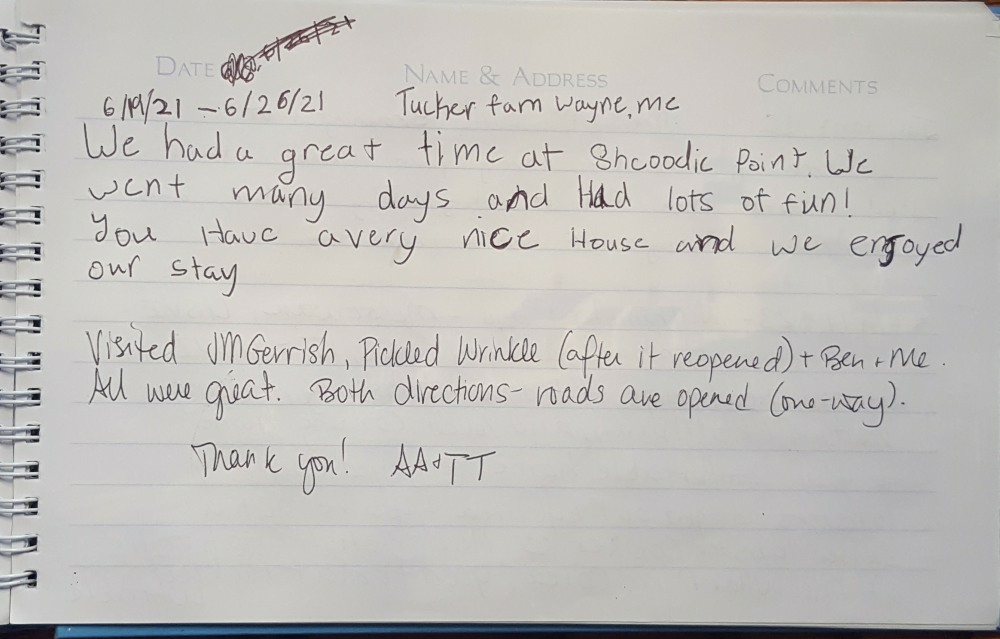 DATE 6/26/21
NAME & ADDRESS
COMMENTS
6/19/21 - 6/26/21 Tucker fam Wayne, me
We had a great time at Shcoodic Point. We
went many days and Had lots of fun!
You Have a very nice House and we enjoyed
our stay
Visited JM Gerrish, Pickled Wrinkle (after it reopened) + Ben + Me.
All were great. Both directions - roads are opened (one-way).
Thank you! AA + TT